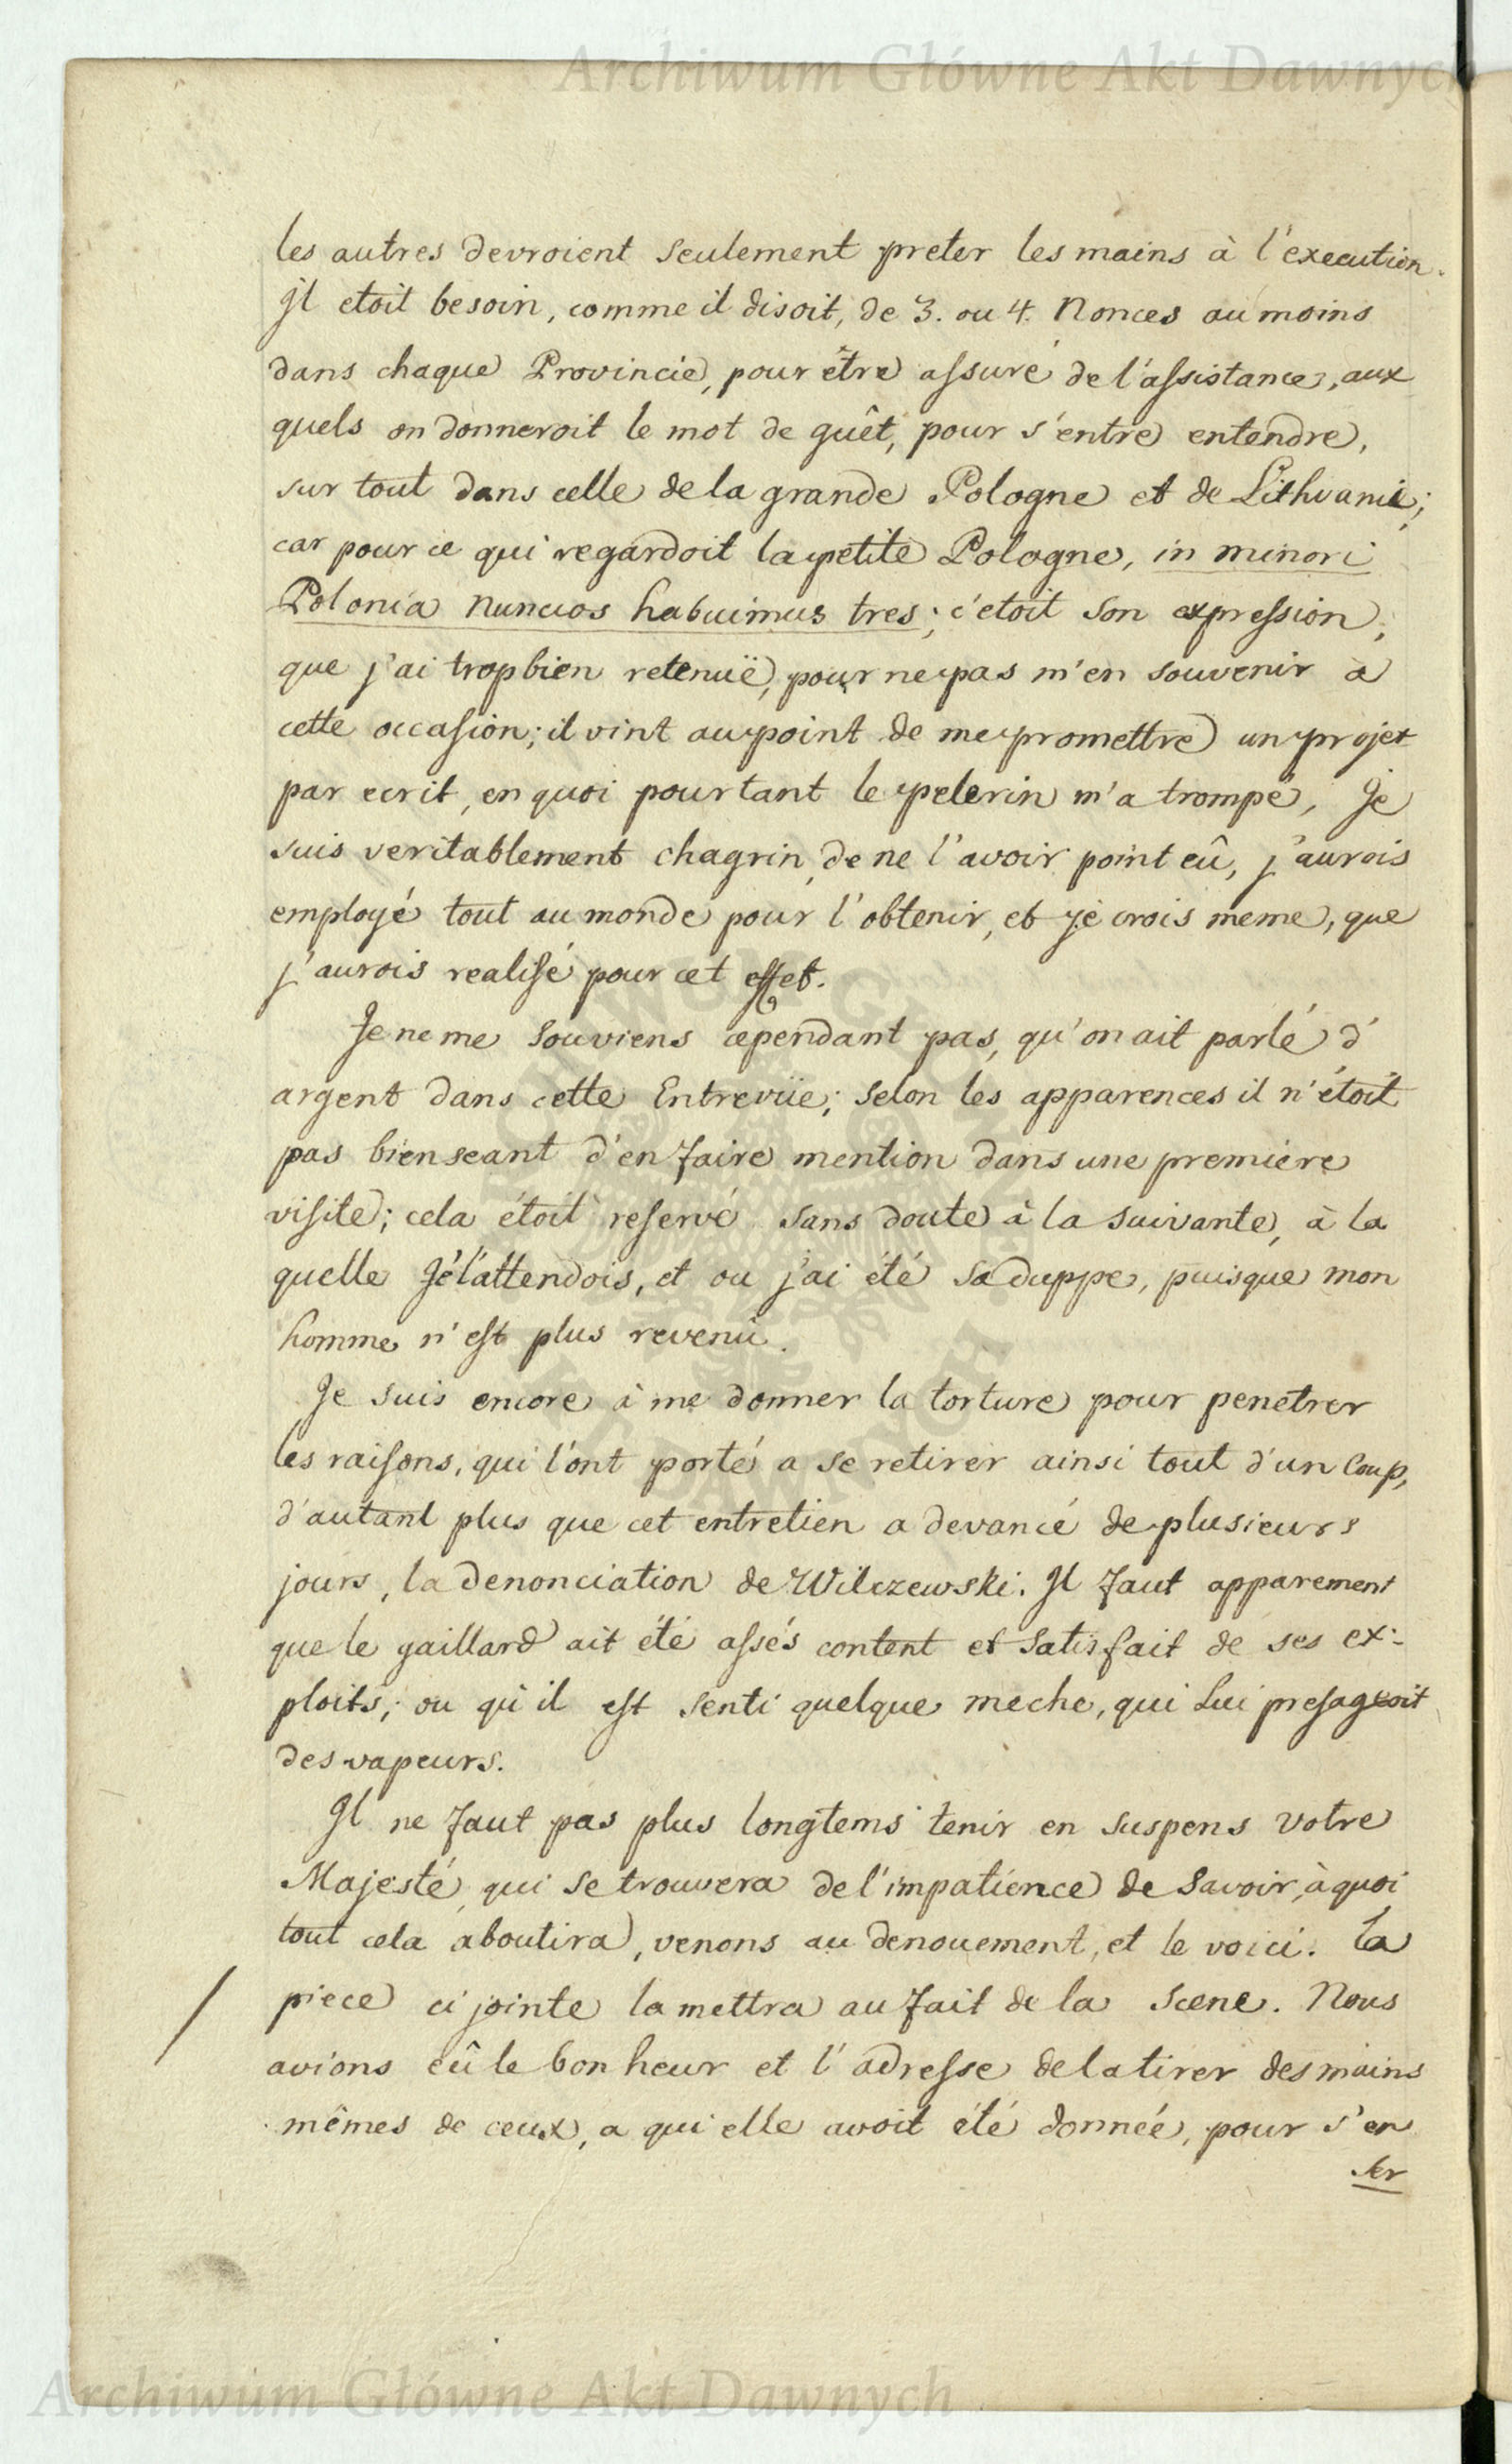 Archiwum Główne Akt Dawnych
les autres devroient seulement preter les mains à l'execution.
Jl etoit besoin, comme il disoit, de 3. ou 4. Nonces au moins
dans chaque Provincie, pour être assuré de l'assistance, aux
quels on donneroit le mot de guêt, pour s'entre entendre,
sur tout dans celle de la grande Pologne et de Lithuanie;
car pour ce qui regardoit la petite Pologne, in minori
Polonia Nuncios habuimus tres; c'etoit son expression,
que j'ai trop bien retenuë, pour ne pas m'en souvenir à
cette occasion; il vint au point de me promettre un projet
par ecrit, en quoi pourtant le pelerin m'a trompé, Je
suis veritablement chagrin, de ne l'avoir point eû, j'aurois
employé tout au monde pour l'obtenir, et je crois meme, que
j'aurois realisé pour cet effet.
Je ne me souviens cependant pas, qu'on ait parlé d'
argent dans cette Entreviie; selon les apparences il n'étoit
pas bienseant d'en faire mention dans une premiére
visite; cela étoit reservé sans doute à la suivante, à la
quelle Je l'attendois, et ou j'ai été sa duppe, puisque mon
homme n'est plus revenû.
Je suis encore à me donner la torture pour penetrer
les raisons, qui l'ont porté a se retirer ainsi tout d'un Coup,
d'autant plus que cet entretien a devancé de plusieurs
jours, la denonciation de Wilczewski. Jl faut apparement
que le gaillard ait été assés content et satisfait de ses ex-
ploits; ou qu'il est senti quelque meche, qui Lui presageoit
des vapeurs.
Jl ne faut pas plus longtems tenir en suspens Votre
Majesté, qui se trouvera de l'impatience de savoir, à quoi
tout cela aboutira, venons au denouement, et le voici. La
piece ci jointe la mettra au fait de la Scene. Nous
avions eû le bonheur et l'adresse de la tirer des mains
mêmes de ceux, a qui elle avoit été donnée, pour s'en
ser
Archiwum Główne Akt Dawnych